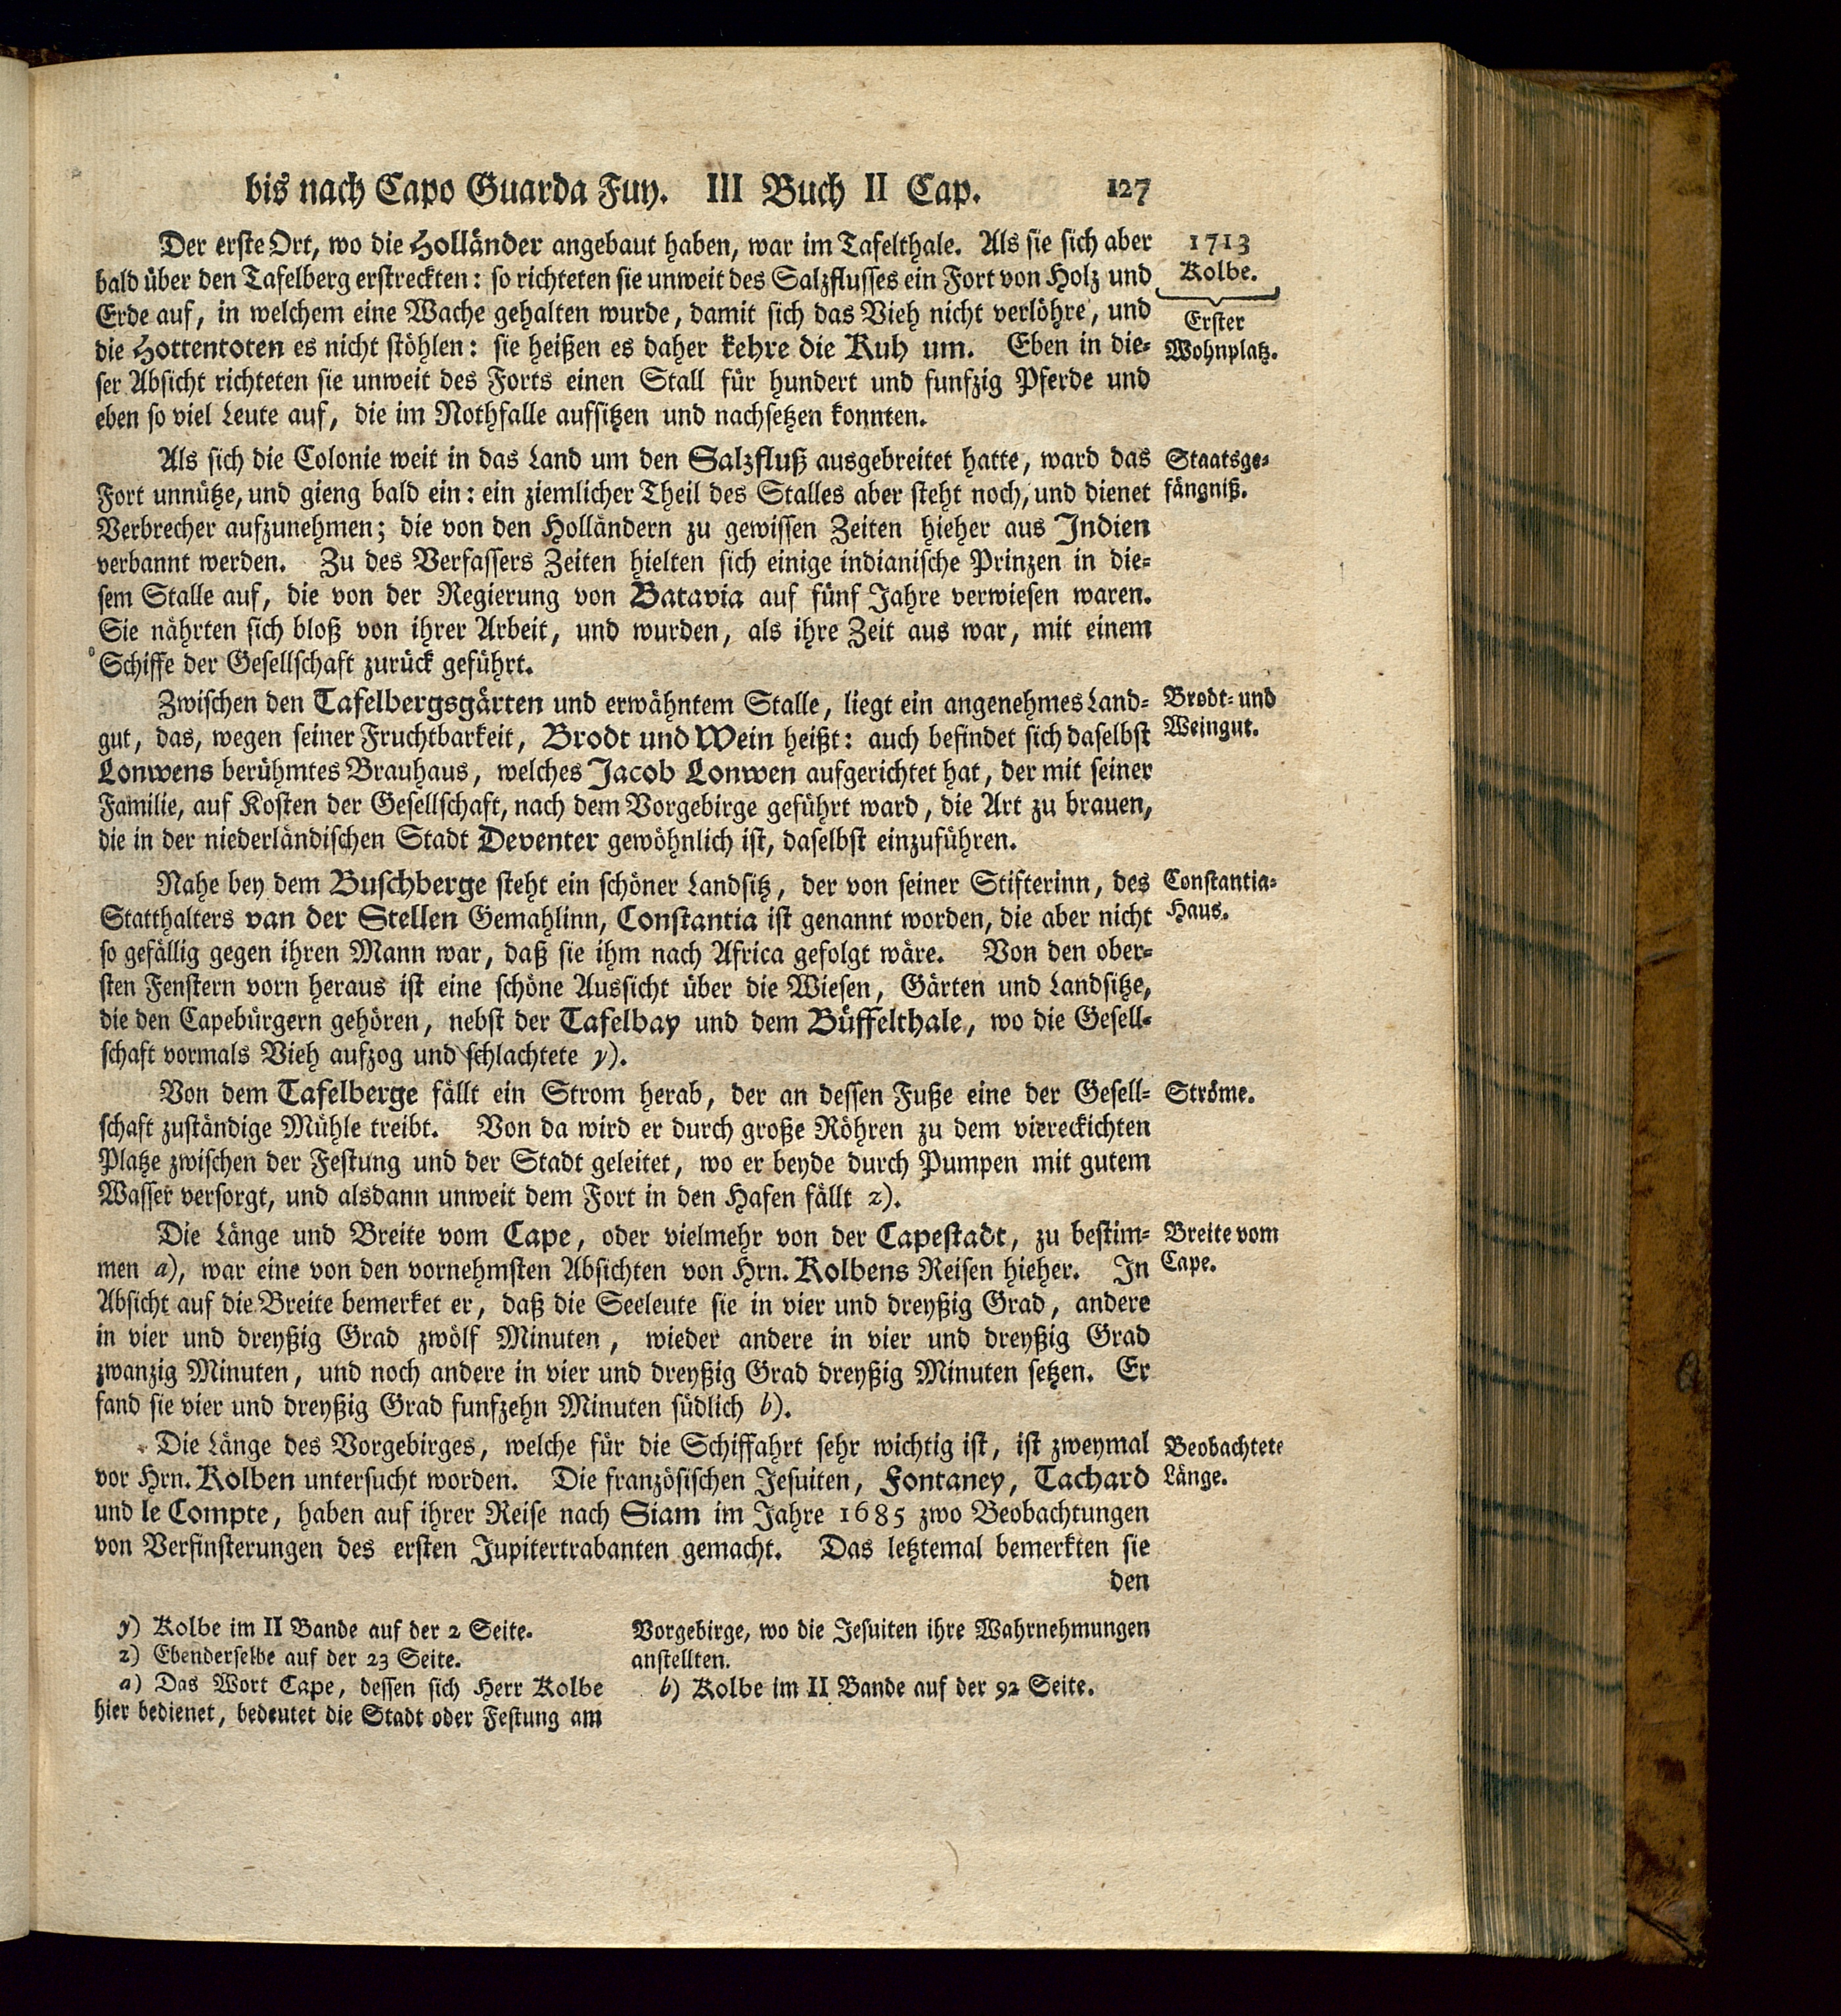 bis nach Capo Guarda Fuy. III Buch II Cap. 127
Der erste Ort, wo die Holländer angebaut haben, war im Tafelthale. Als sie sich aber
bald über den Tafelberg erstreckten: so richteten sie unweit des Salzflusses ein Fort von Holz und
Erde auf, in welchem eine Wache gehalten wurde, damit sich das Vieh nicht verlöhre, und
die Hottentoten es nicht stöhlen: sie heißen es daher kehre die Kuh um. Eben in die-
ser Absicht richteten sie unweit des Forts einen Stall für hundert und funfzig Pferde und
eben so viel Leute auf, die im Nothfalle aufsitzen und nachsetzen konnten.
1713
Kolbe.
Erster
Wohnplatz.
Als sich die Colonie weit in das Land um den Salzfluß ausgebreitet hatte, ward das
Fort unnütze, und gieng bald ein: ein ziemlicher Theil des Stalles aber steht noch, und dienet
Verbrecher aufzunehmen; die von den Holländern zu gewissen Zeiten hieher aus Indien
verbannt werden. Zu des Verfassers Zeiten hielten sich einige indianische Prinzen in die-
sem Stalle auf, die von der Regierung von Batavia auf fünf Jahre verwiesen waren.
Sie nährten sich bloß von ihrer Arbeit, und wurden, als ihre Zeit aus war, mit einem
Schiffe der Gesellschaft zurück geführt.
Staatsge-
fängniß.
Zwischen den Tafelbergsgärten und erwähntem Stalle, liegt ein angenehmes Land-
gut, das, wegen seiner Fruchtbarkeit, Brodt und Wein heißt: auch befindet sich daselbst
Lonwens berühmtes Brauhaus, welches Jacob Lonwen aufgerichtet hat, der mit seiner
Familie, auf Kosten der Gesellschaft, nach dem Vorgebirge geführt ward, die Art zu brauen,
die in der niederländischen Stadt Deventer gewöhnlich ist, daselbst einzuführen.
Brodt- und
Weingut.
Nahe bey dem Buschberge steht ein schöner Landsitz, der von seiner Stifterinn, des
Statthalters van der Stellen Gemahlinn, Constantia ist genannt worden, die aber nicht
so gefällig gegen ihren Mann war, daß sie ihm nach Africa gefolgt wäre. Von den ober-
sten Fenstern vorn heraus ist eine schöne Aussicht über die Wiesen, Gärten und Landsitze,
die den Capebürgern gehören, nebst der Tafelbay und dem Büffelthale, wo die Gesell-
schaft vormals Vieh aufzog und schlachtete y).
Constantia-
Haus.
Von dem Tafelberge fällt ein Strom herab, der an dessen Fuße eine der Gesell-
schaft zuständige Mühle treibt. Von da wird er durch große Röhren zu dem viereckichten
Platze zwischen der Festung und der Stadt geleitet, wo er beyde durch Pumpen mit gutem
Wasser versorgt, und alsdann unweit dem Fort in den Hafen fällt z).
Ströme.
Die Länge und Breite vom Cape, oder vielmehr von der Capestadt, zu bestim-
men a), war eine von den vornehmsten Absichten von Hrn. Kolbens Reisen hieher. In
Absicht auf die Breite bemerket er, daß die Seeleute sie in vier und dreyßig Grad, andere
in vier und dreyßig Grad zwölf Minuten, wieder andere in vier und dreyßig Grad
zwanzig Minuten, und noch andere in vier und dreyßig Grad dreyßig Minuten setzen. Er
fand sie vier und dreyßig Grad funfzehn Minuten südlich b).
Breite vom
Cape.
Die Länge des Vorgebirges, welche für die Schiffahrt sehr wichtig ist, ist zweymal
vor Hrn. Kolben untersucht worden. Die französischen Jesuiten, Fontaney, Tachard
und le Compte, haben auf ihrer Reise nach Siam im Jahre 1685 zwo Beobachtungen
von Verfinsterungen des ersten Jupitertrabanten gemacht. Das letztemal bemerkten sie
den
Beobachtete
Länge.
y) Kolbe im II Bande auf der 2 Seite.
z) Ebenderselbe auf der 23 Seite.
a) Das Wort Cape, dessen sich Herr Kolbe
hier bedienet, bedeutet die Stadt oder Festung am
Vorgebirge, wo die Jesuiten ihre Wahrnehmungen
anstellten.
b) Kolbe im II Bande auf der 92 Seite.